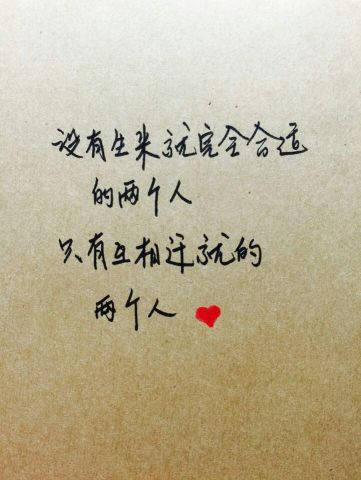 没有生来就完全合适
的两个人
只有互相迁就的
两个人